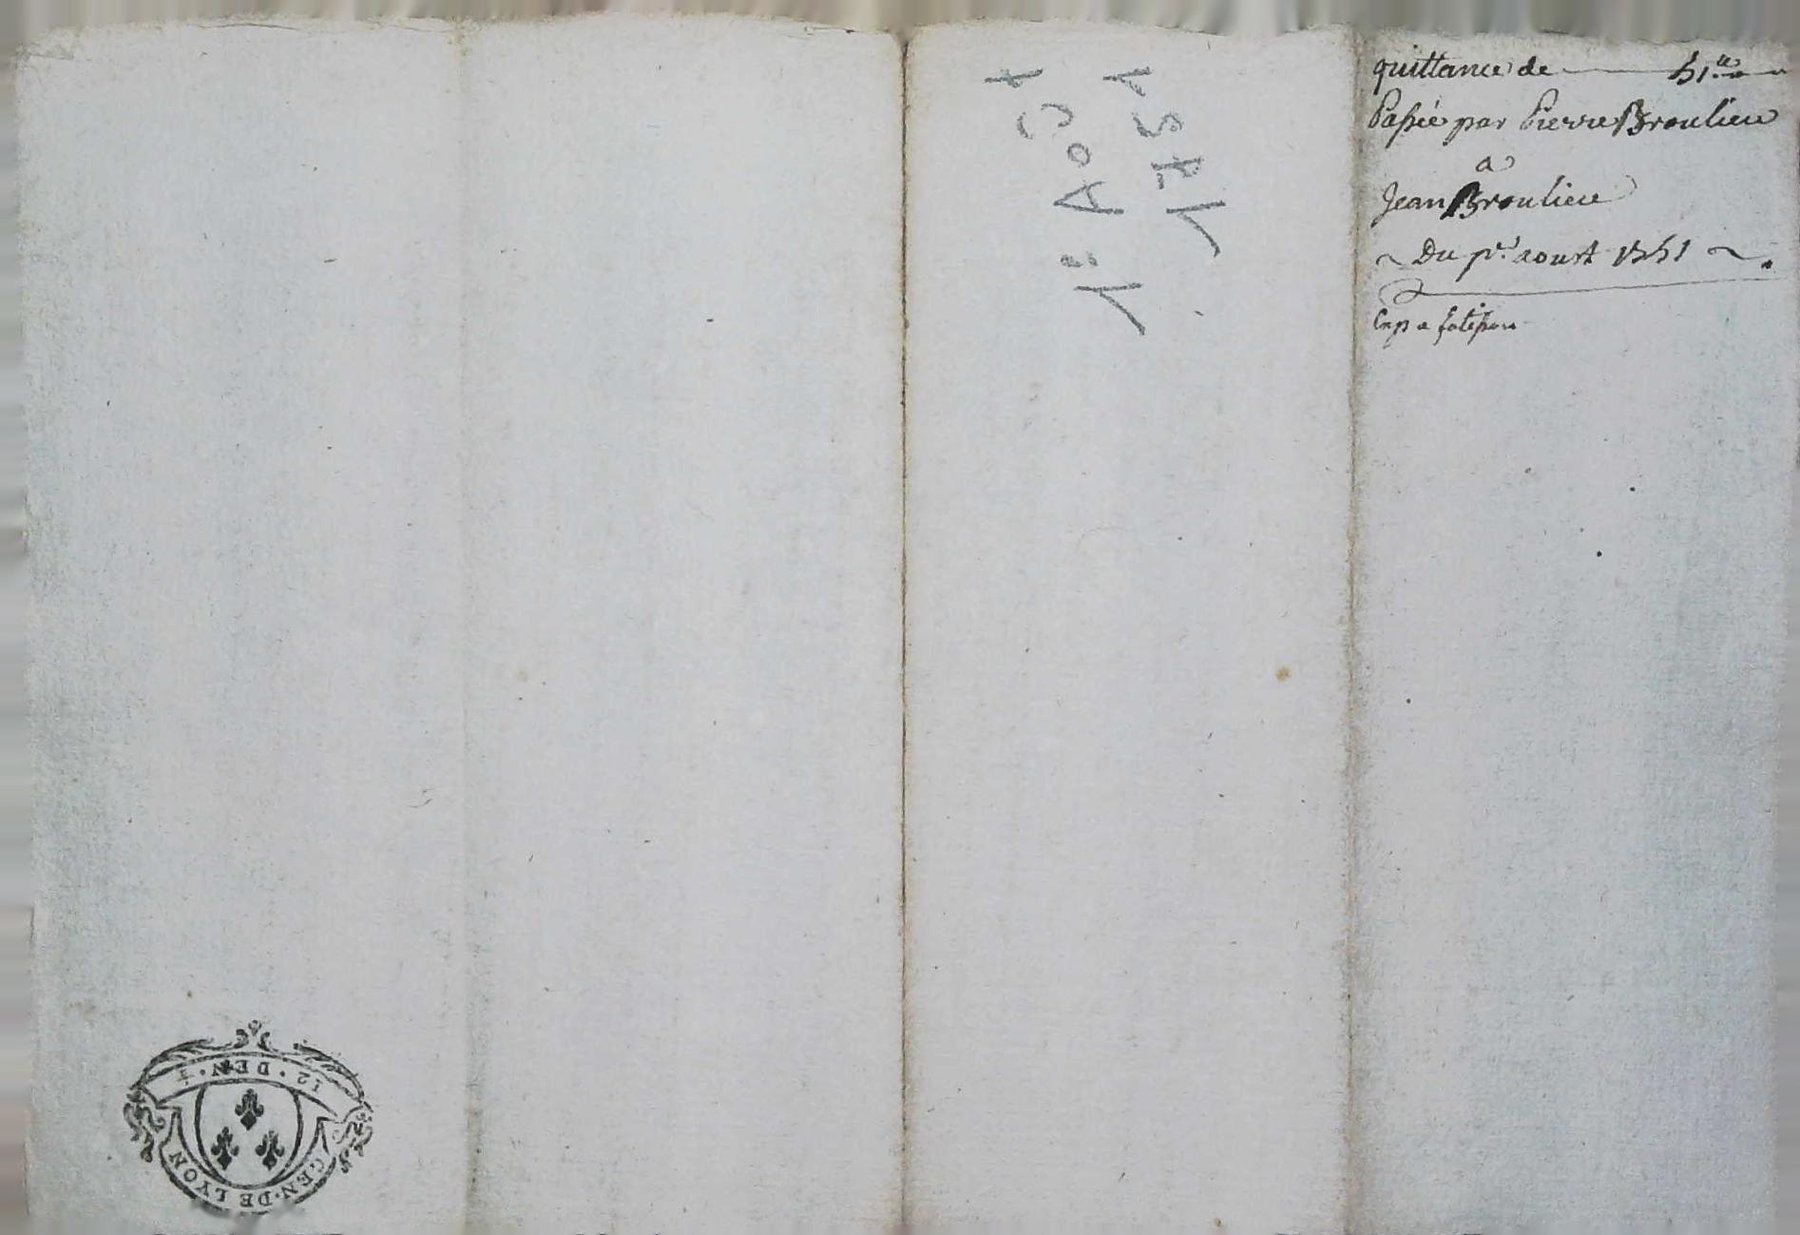 quittance de 51.ᵗᵗ
Passée par Pierre Broulieu
a
Jean Broulieu
~ Du pʳ. aoust 1751 ~
Exp a
1ᵉʳ Août
1751
12 · DEN · F
GEN · DE LYON